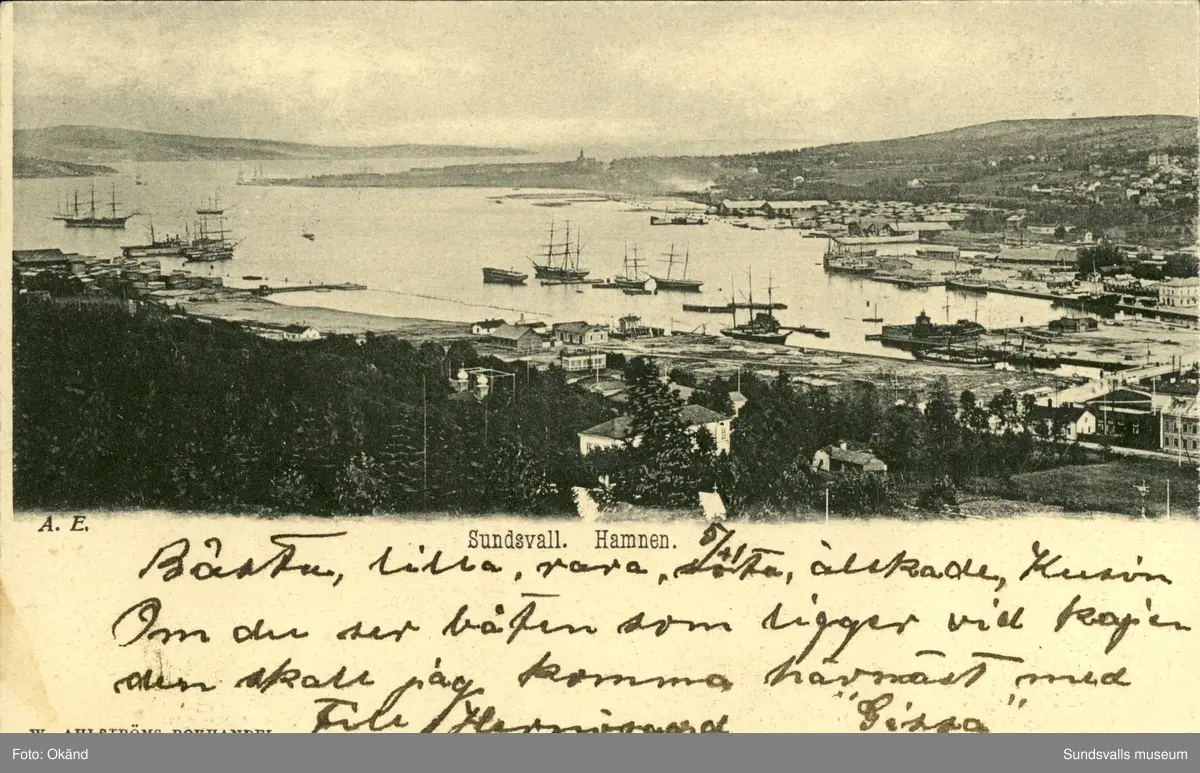 A. E.
Sundsvall. Hamnen.
Bästa, lilla, rara, söta, älskade, Kusin
Om du ser båten som ligger vid kajen
den skall jag komma härnäst med
Till Hernösand "Gissa"
W. AHLSTRÖMS BOKHANDEL
Foto: Okänd
Sundsvalls museum